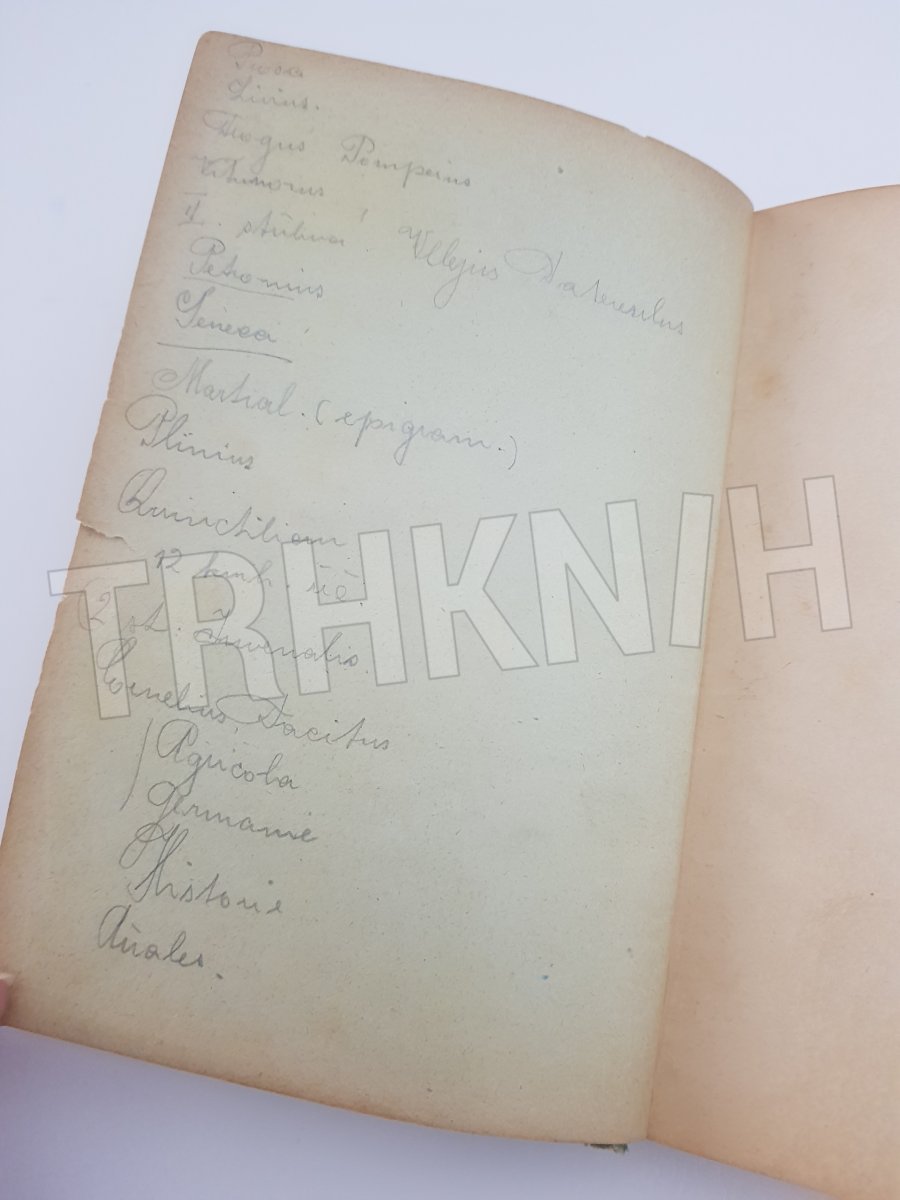 Livius.
Trogus Pompeius
II. stříbrná. Vellejus Paterculus
Petronius
Seneca
Martial. (epigram.)
Plinius
Quinctilian
12 knih
2 st. Juvenalis
Cornelius Tacitus
Agricola
Germanie
Historie
Anales.
TRHKNIH